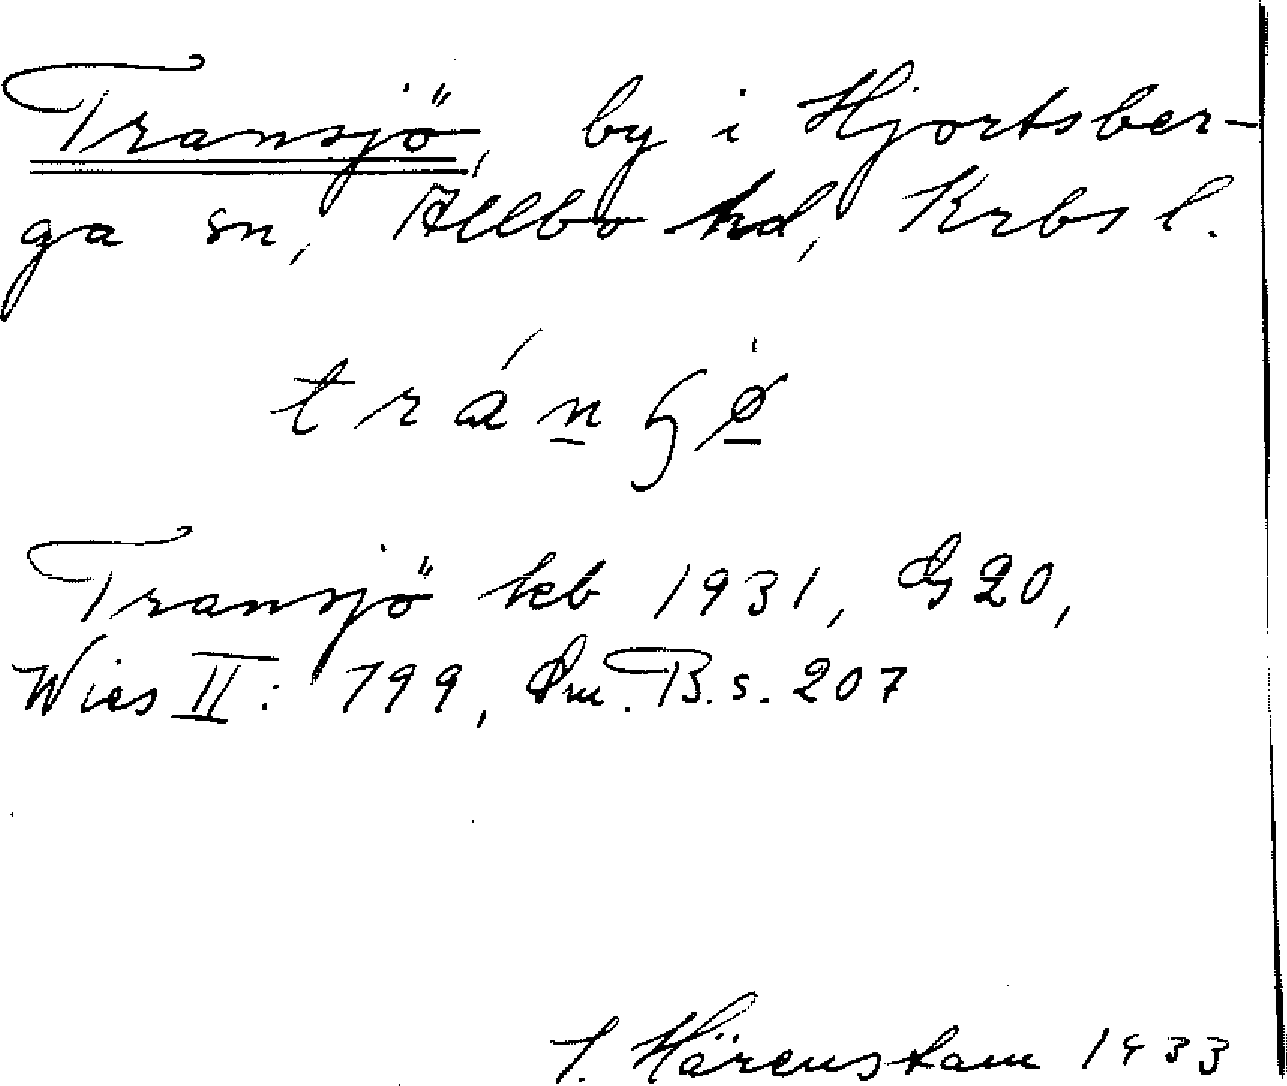 Transjö, by i Hjortsber-
ga sn, Allbo hd, Krbs l.
tránʂø
Transjö kb 1931, G 20,
Wies II: 799, Sm. B. s. 207
J. Härenstam 1933